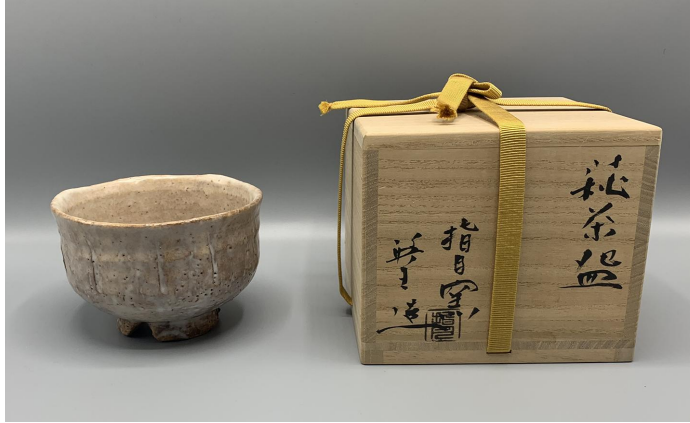 萩茶盌
指月窯
造